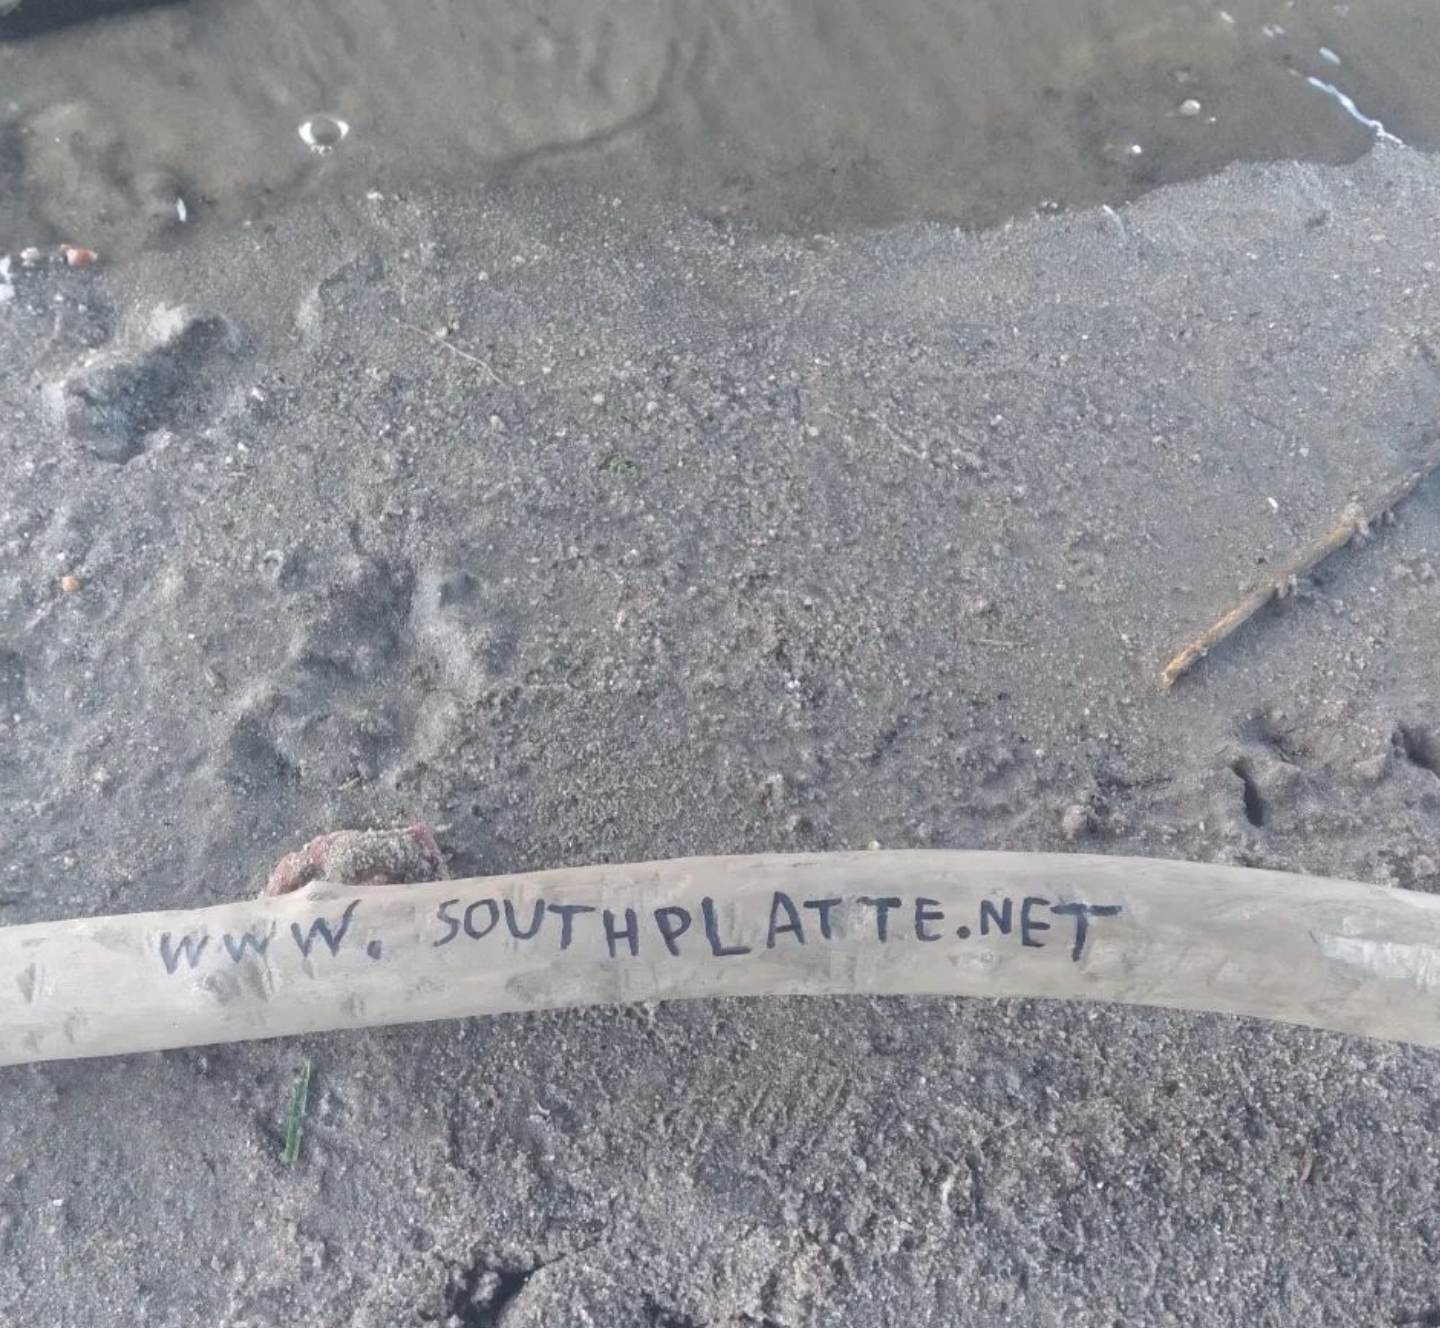 WWW. SOUTHPLATTE.NET